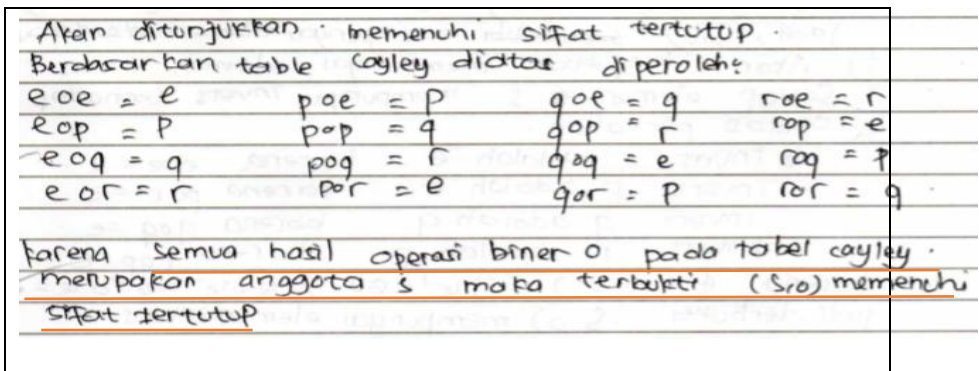 Akan ditunjukkan memenuhi sifat tertutup
Berdasarkan table Cayley diatas diperoleh:
eoe = e poe = p qoe = q roe = r
eop = p pop = q qop = r rop = e
eoq = q poq = r qoq = e roq = p
eor = r por = e qor = p ror = q
karena semua hasil operasi biner o pada tabel cayley.
merupakan anggota s maka terbukti (S,o) memenuhi
sifat tertutup